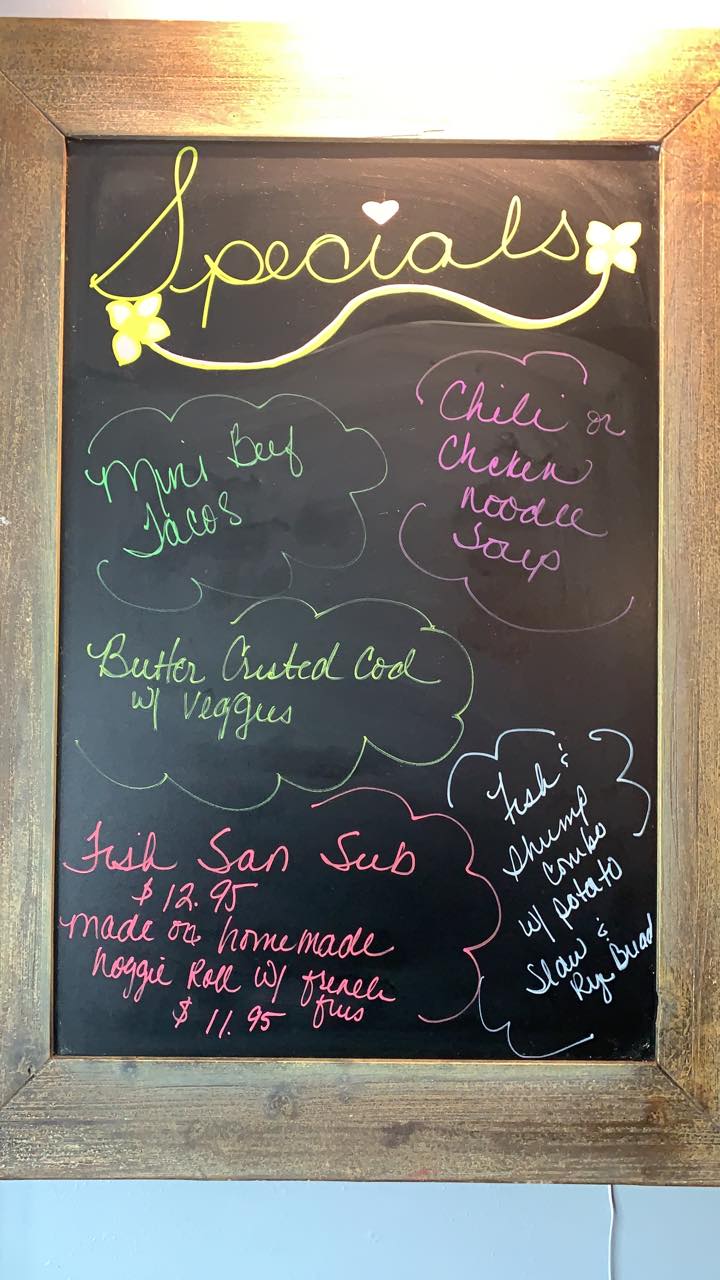 Specials
Chili or
Chicken
noodle
Soup
Mini Beef
Tacos
Butter Crusted Cod
w/ Veggies
Fish San Sub
$12.95
made on homemade
hoggie Roll w/ french
fries
$11.95
Fish &
Shrimp
combo
w/ potato
Slaw &
Rye Bread